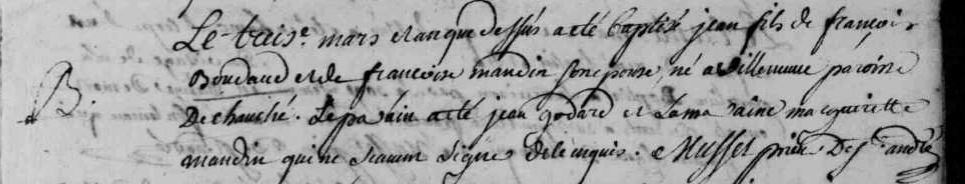 Le trise. mars et an que dessus a eté baptisé jean fils de françois
Boudaud et de françoise mandin son epouse, né a villeneuve paroisse
B. De chauché. Le parain a eté jean godard et La maraine margueritte
mandin qui ne scavent signer de ce enquis. Musset prieur De st andré